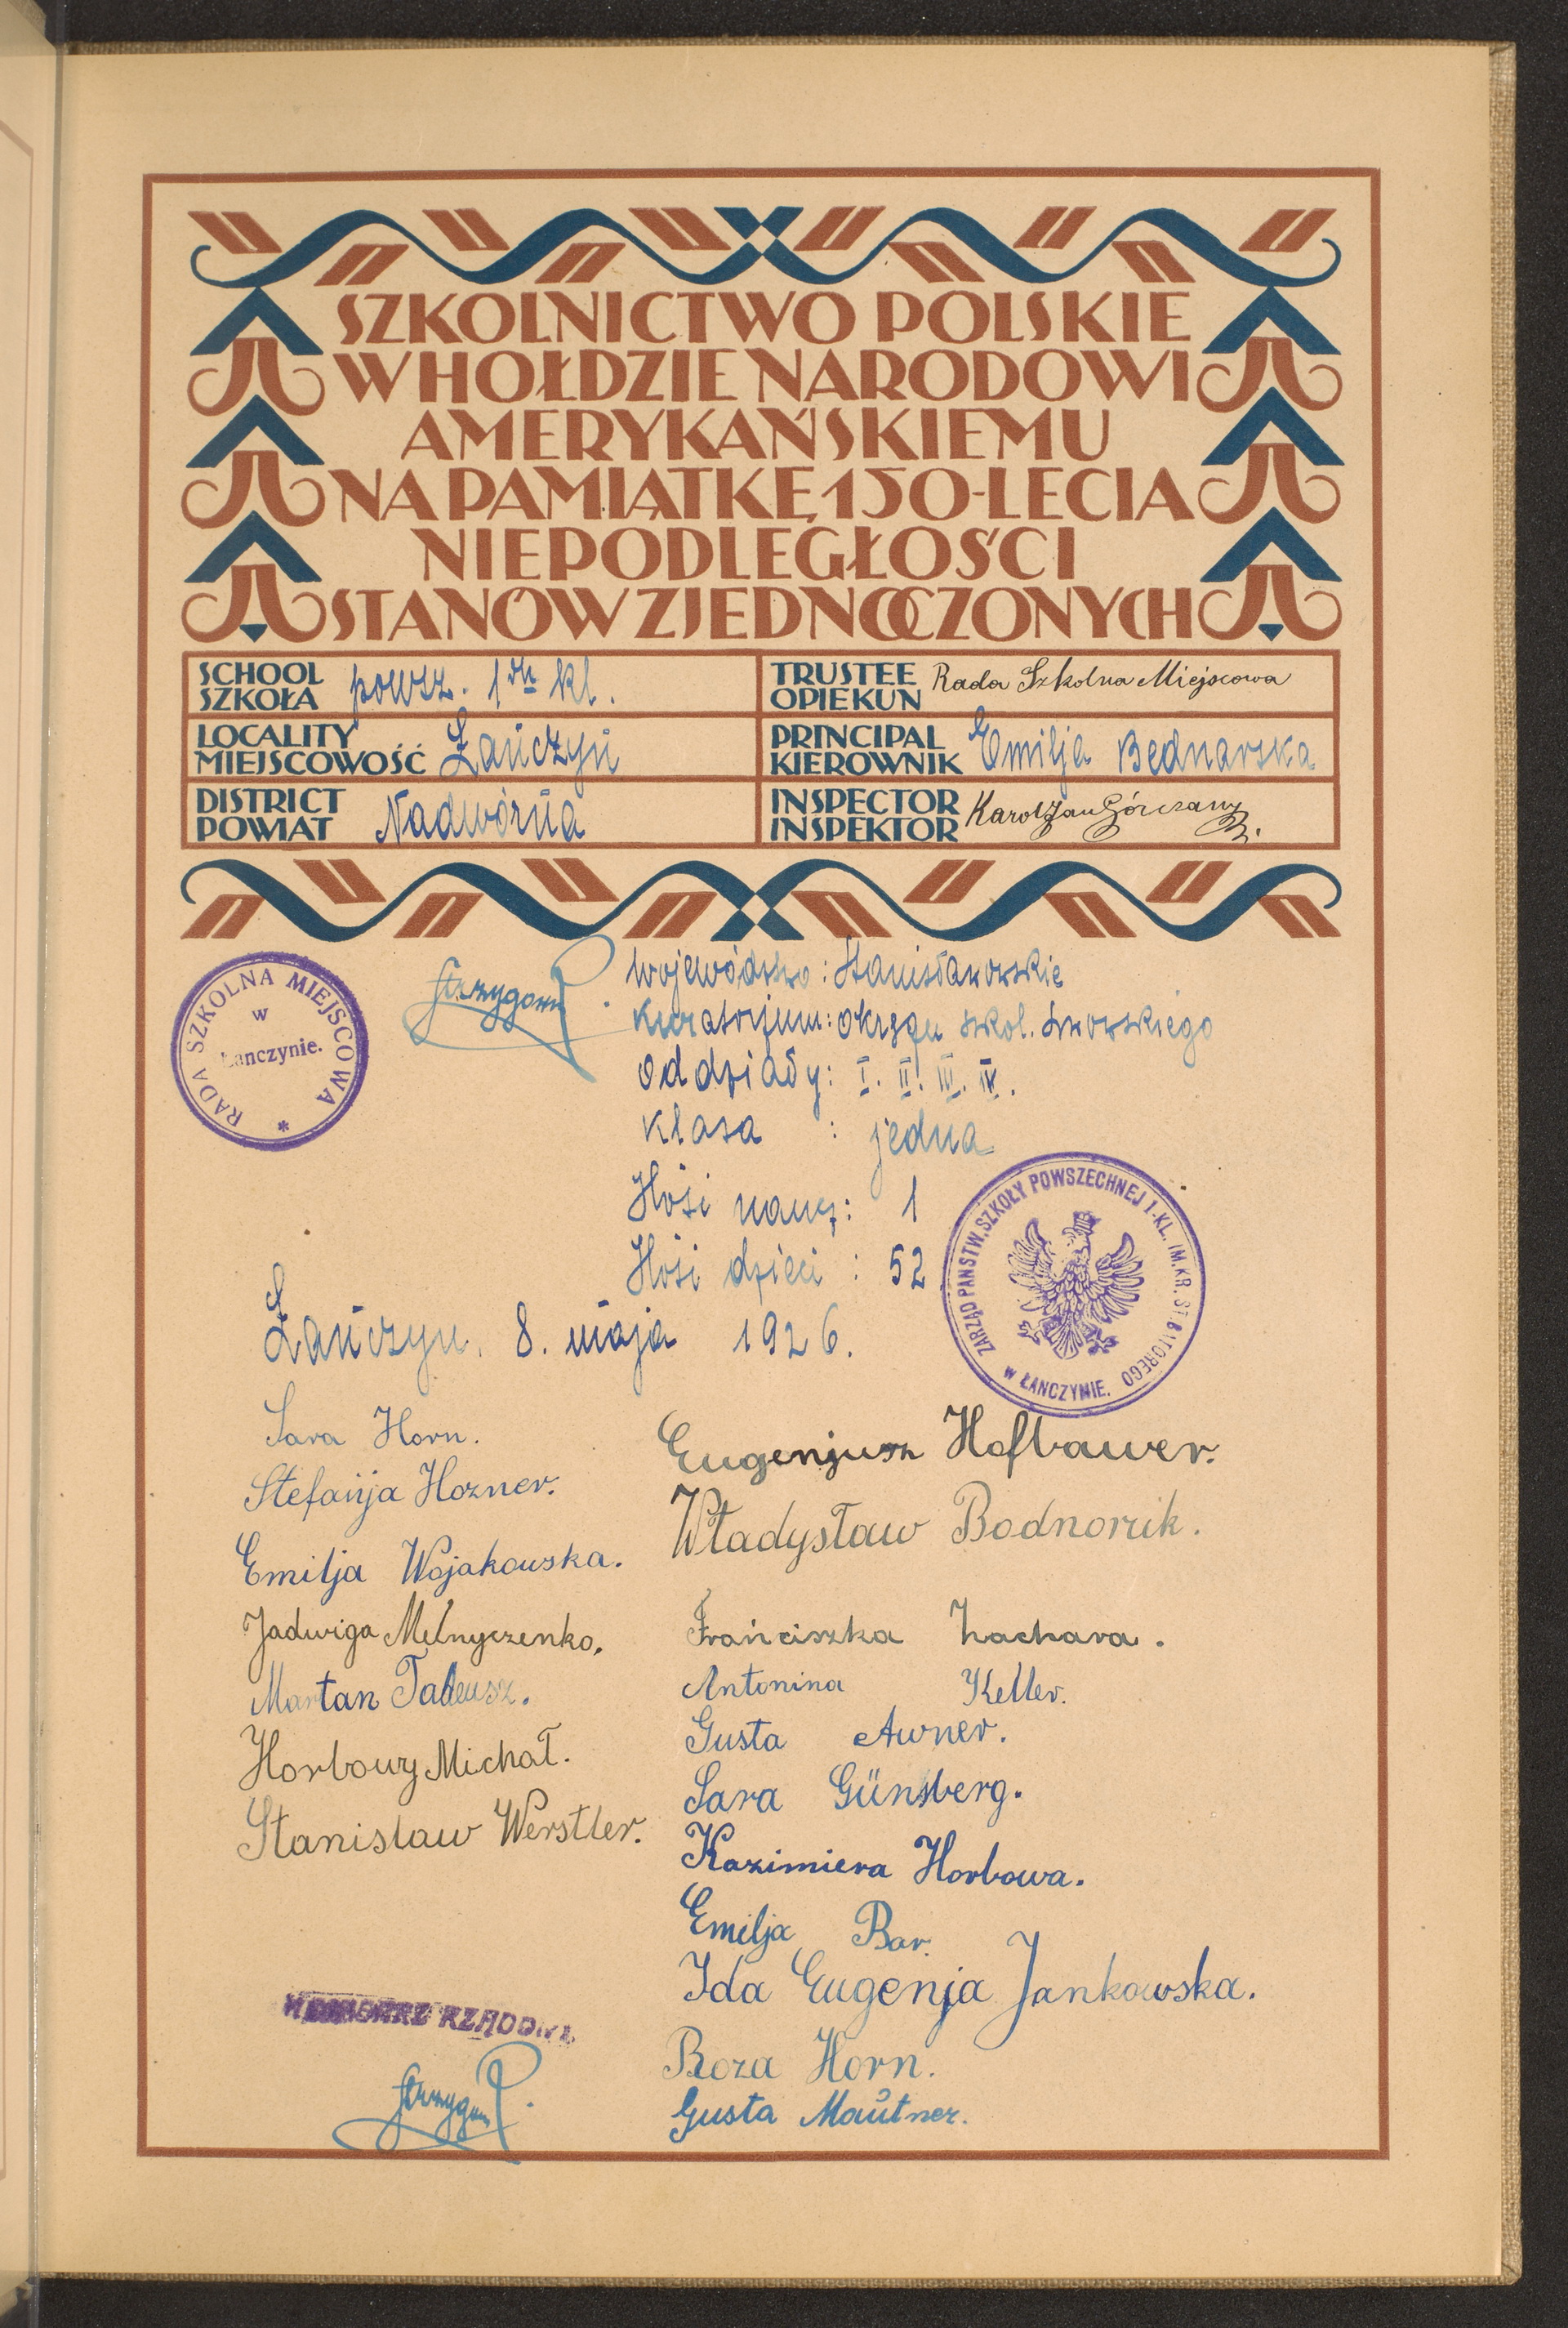 SZKOLNICTWO POLSKIE
W HOŁDZIE NARODOWI
AMERYKAŃSKIEMU
NA PAMIĄTKĘ 150-LECIA
NIEPODLEGŁOŚCI
STANÓW ZJEDNOCZONYCH
SCHOOL
SZKOŁA powsz. 1 kl.
TRUSTEE
OPIEKUN Rada Szkolna Miejscowa
LOCALITY
MIEJSCOWOŚĆ Łańczyn
PRINCIPAL
KIEROWNIK Emilja Bednarska
DISTRICT
POWIAT Nadwórna
INSPECTOR
INSPEKTOR Karol Jan Górczany
RADA SZKOLNA MIEJSCOWA
w
Łanczynie.
województwo: Stanisławowskie
Kuratorjum: okręgu szkol. Lwowskiego
oddziały: I. II. III. IV.
klasa : jedna
Ilość naucz: 1
Ilość dzieci : 52
ZARZĄD PAŃSTW. SZKOŁY POWSZECHNEJ 1-KL. IM. KR. ST. BATOREGO
W ŁANCZYNIE.
Łańczyn. 8. maja 1926.
Sara Horn.
Stefanja Hozner.
Emilja Wojakowska.
Jadwiga Melnyczenko.
Martan Tadeusz.
Horbowy Michał.
Stanisław Werstler.
Eugenjusz Hofbauer.
Władysław Bodnorik.
Franciszka Zachara.
Antonina Keller.
Gusta Awner.
Sara Günsberg.
Kazimiera Horbowa.
Emilja Bar.
Ida Eugenja Jankowska.
Roza Horn.
Gusta Maŭtner.
RZĄDOWY